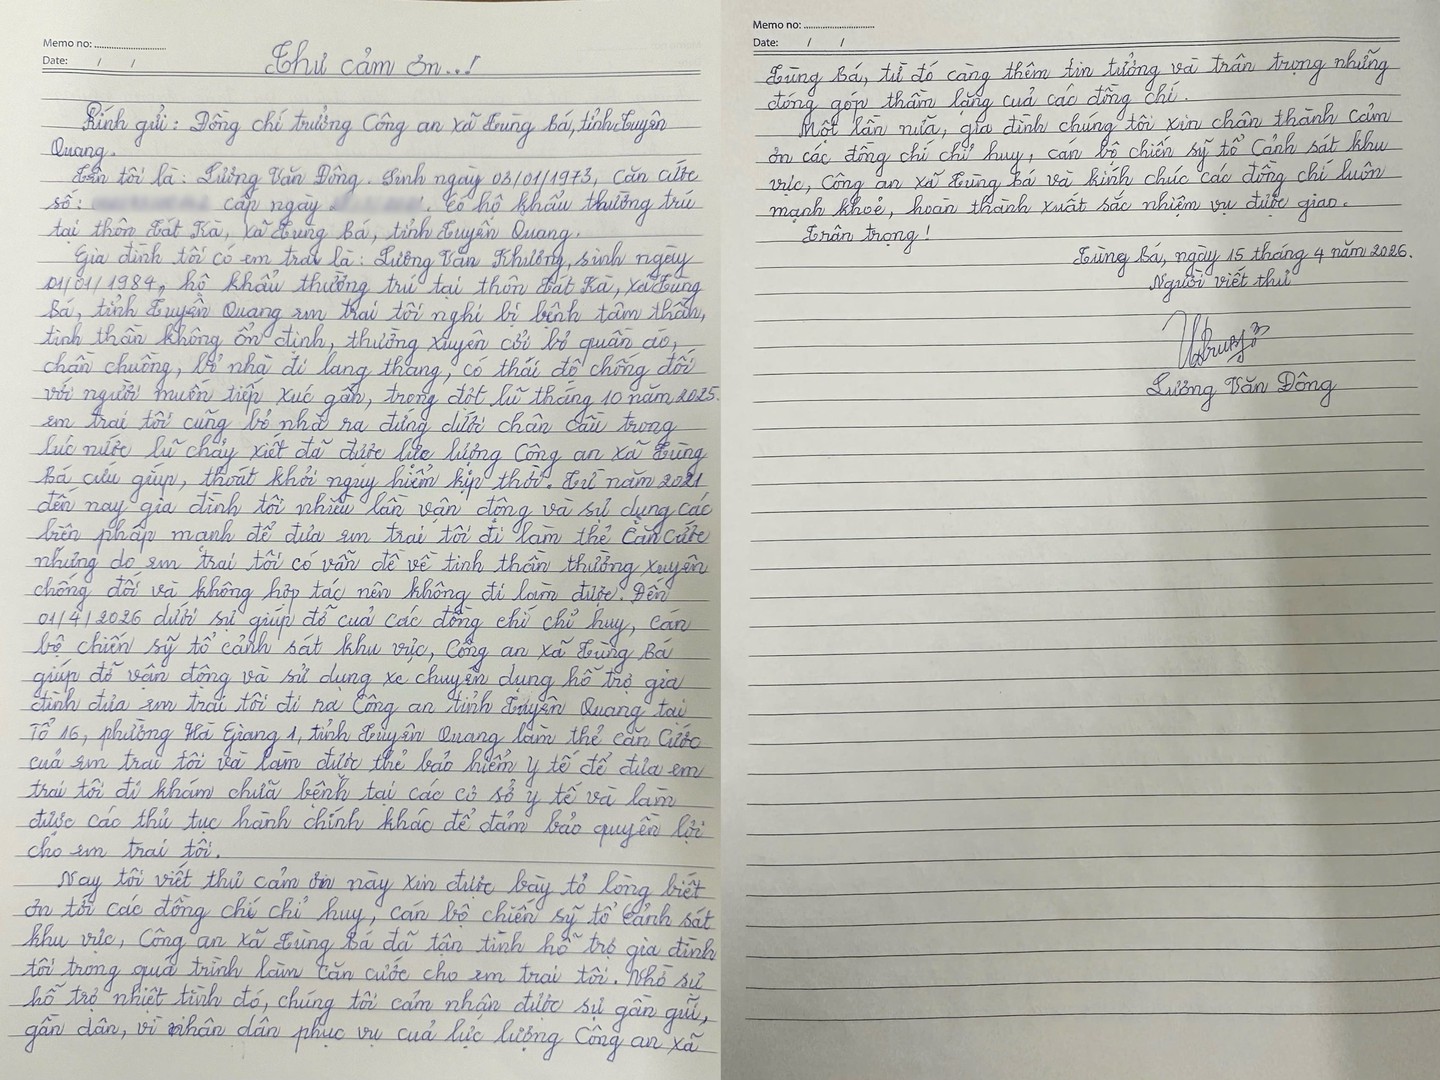 Memo no: ........................
Date: / /
Thư cảm ơn..!
Kính gửi: Đồng chí trưởng Công an xã Tùng Bá, tỉnh Tuyên
Quang.
Tên tôi là: Lương Văn Đông. Sinh ngày 03/01/1973, Căn cước
số: cấp ngày . Có hộ khẩu thường trú
tại thôn Tát Kà, xã Tùng Bá, tỉnh Tuyên Quang.
Gia đình tôi có em trai là: Lương Văn Khương, sinh ngày
01/01/1984, hộ khẩu thường trú tại thôn Tát Kà, xã Tùng
Bá, tỉnh Tuyên Quang em trai tôi nghi bị bệnh tâm thần,
tinh thần không ổn định, thường xuyên cởi bỏ quần áo,
chăn chuồng, bỏ nhà đi lang thang, có thái độ chống đối
với người muốn tiếp xúc gần, trong đợt lũ tháng 10 năm 2025.
em trai tôi cũng bỏ nhà ra đứng dưới chân cầu trong
lúc nước lũ chảy xiết đã được lực lượng Công an xã Tùng
Bá cứu giúp, thoát khỏi nguy hiểm kịp thời. Từ năm 2021
đến nay gia đình tôi nhiều lần vận động và sử dụng các
biện pháp mạnh để đưa em trai tôi đi làm thẻ Căn Cước
nhưng do em trai tôi có vấn đề về tinh thần thường xuyên
chống đối và không hợp tác nên không đi làm được. Đến
01/4/2026 dưới sự giúp đỡ của các đồng chí chỉ huy, cán
bộ chiến sỹ tổ cảnh sát khu vực, Công an xã Tùng Bá
giúp đỡ vận động và sử dụng xe chuyên dụng hỗ trợ gia
đình đưa em trai tôi đi ra Công an tỉnh Tuyên Quang tại
Tổ 16, phường Hà Giang 1, tỉnh Tuyên Quang làm thẻ căn Cước
của em trai tôi và làm được thẻ bảo hiểm y tế để đưa em
trai tôi đi khám chữa bệnh tại các cơ sở y tế và làm
được các thủ tục hành chính khác để đảm bảo quyền lợi
cho em trai tôi.
Nay tôi viết thư cảm ơn này xin được bày tỏ lòng biết
ơn tới các đồng chí chỉ huy, cán bộ chiến sỹ tổ Cảnh sát
khu vực, Công an xã Tùng Bá đã tận tình hỗ trợ gia đình
tôi trong quá trình làm căn cước cho em trai tôi. Nhờ sự
hỗ trợ nhiệt tình đó, chúng tôi cảm nhận được sự gần gũi,
gần dân, vì nhân dân phục vụ của lực lượng Công an xã
Memo no: ........................
Date: / /
Tùng Bá, từ đó càng thêm tin tưởng và trân trọng những
đóng góp thầm lặng của các đồng chí.
Một lần nữa, gia đình chúng tôi xin chân thành cảm
ơn các đồng chí chỉ huy, cán bộ chiến sỹ tổ Cảnh sát khu
vực, Công an xã Tùng Bá và kính chúc các đồng chí luôn
mạnh khoẻ, hoàn thành xuất sắc nhiệm vụ được giao.
Trân trọng!
Tùng Bá, ngày 15 tháng 4 năm 2026.
Người viết thư
Lương Văn Đông